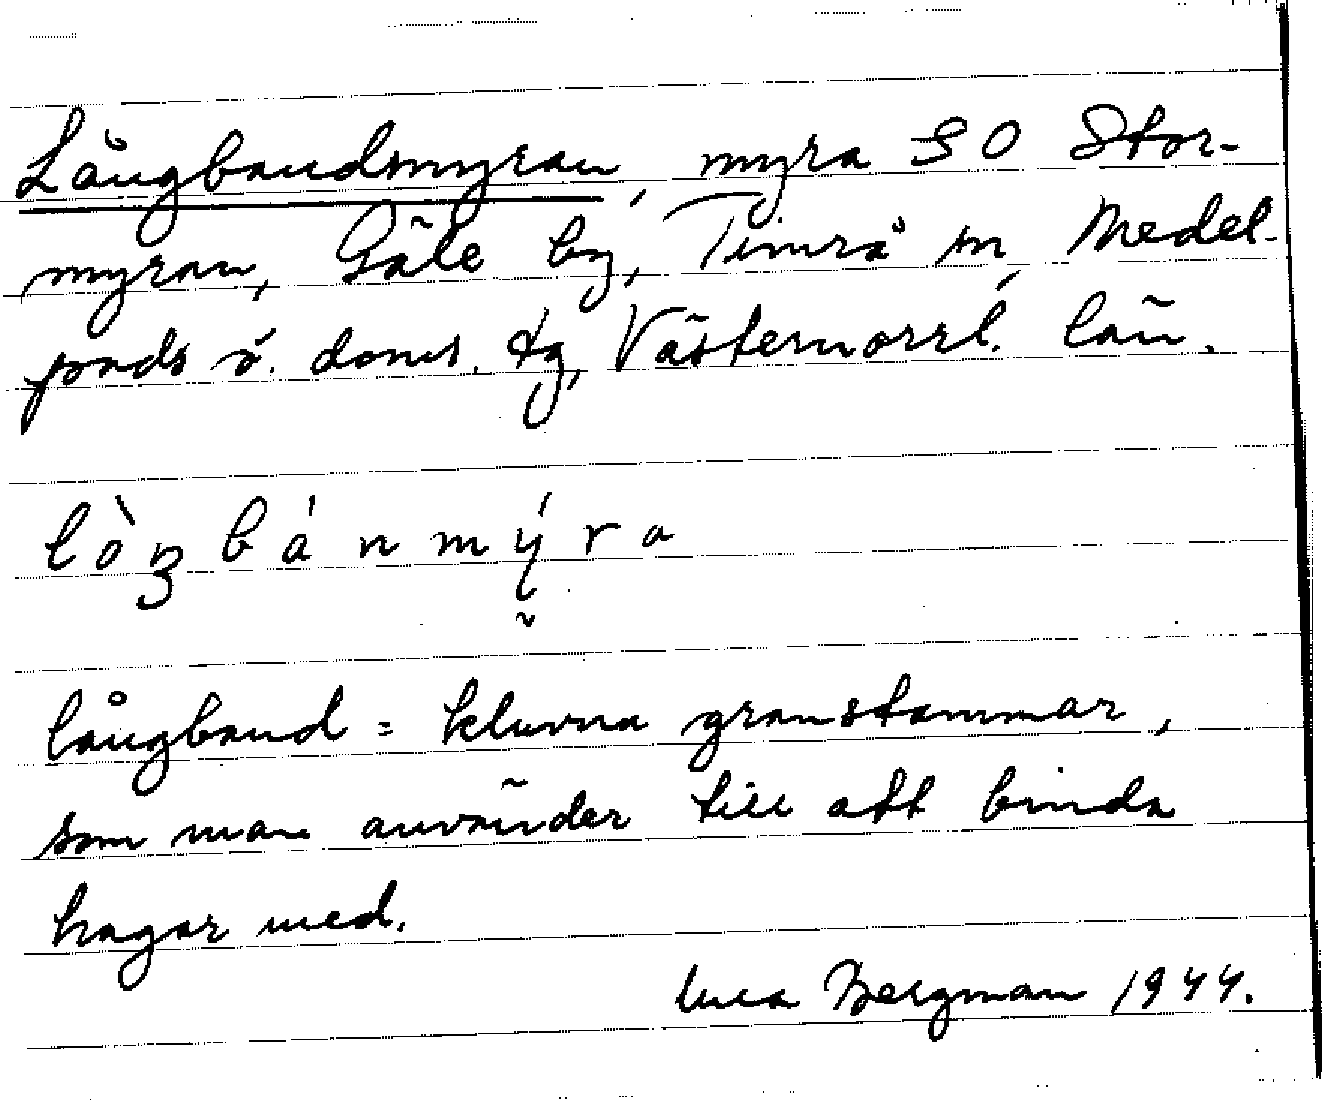 Långbandsmyran, myra SO Stor-
myran, Gäle by, Timrå sn, Medel-
pads ö. doms. tg, Västernorrl. län.
lòŋbánmýra
långband = kluvna granstammar,
som man använder till att binda
hagar med.
Bergman 1944.